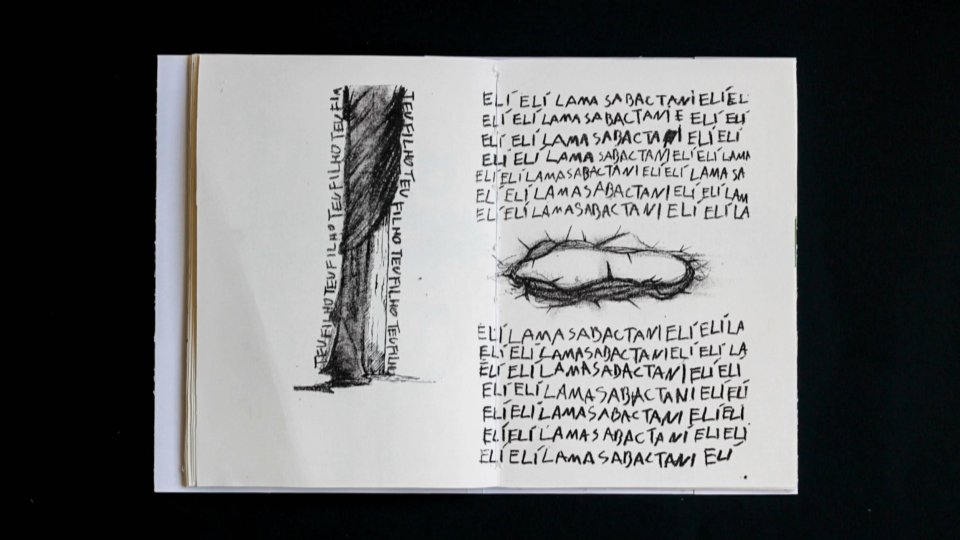 TEU FILHO TEU FILHO TEU FILHO TEU FIA
TEU FILHO TEU FILHO TEU FILHO TEU FILHU
ELÍ ELÍ LAMA SABACTANI ELÍ EL
ELÍ ELÍ LAMA SABACTANI E ELÍ ELÍ
ELÍ ELÍ LAMA SABACTANI ELÍ ELÍ
ELÍ ELÍ LAMA SABACTANI ELÍ ELÍ LAMA
ELÍ ELÍ LAMA SABACTANI ELÍ ELÍ LAMA SA
ELÍ ELÍ LAMA SABACTANI ELÍ ELÍ LAM
ELÍ ELÍ LAMA SABACTANI ELÍ ELÍ LA
ELÍ LAMA SABACTANI ELÍ ELÍ LA
ELÍ ELÍ LAMA SABACTANI ELÍ ELÍ LA
ELÍ ELÍ LAMA SABACTANI ELÍ ELÍ
ELÍ ELÍ LAMA SABACTANI ELÍ ELÍ
ELÍ ELÍ LAMA SABACTANI ELÍ ELÍ
ELÍ ELÍ LAMA SABACTANI ELI ELI
ELÍ ELÍ LAMA SABACTANI ELÍ